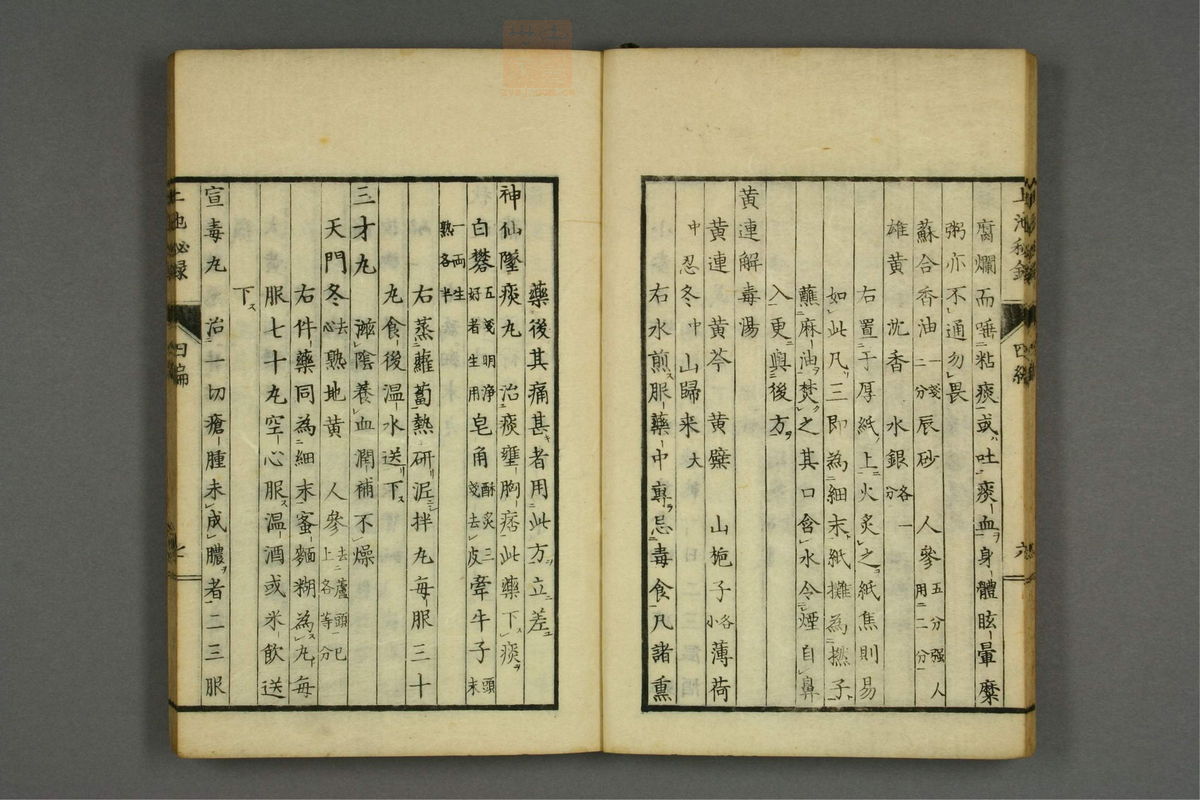 腐爛而唾粘痰或吐痰血身體眩暈糜
粥亦不通勿畏
蘇合香油一戔二分辰砂 人參五分強人用二分
雄黃 沈香 水銀各一分
右置于厚紙上火炙之紙焦則易
如此凡三即為細末紙攤為撚子
蘸麻油焚之其口含水令煙自鼻
入更與後方
黃連解毒湯
黃連 黃芩 黃蘗 山梔子各小薄荷
中 忍冬中 山歸来大
右水煎服藥中專忌毒食凡諸熏
藥後其痛甚者用此方立差
神仙墜痰丸 治痰壅胸痞此藥下痰
白礬五戔明淨好者生用皂角酥炙三戔去皮牽牛子頭末
一両生熟各半
右蒸蘿蔔熱研泥拌丸每服三十
丸食後温水送下
三才丸 滋陰養血潤補不燥
天門冬去心熟地黃 人參去蘆頭已上各等分
右件藥同為細末蜜麵糊為丸每
服七十丸空心服温酒或米飲送
下
宣毒丸 治一切瘡腫未成膿者二三服
上池秘録 四編 六
上池秘録 四編 七